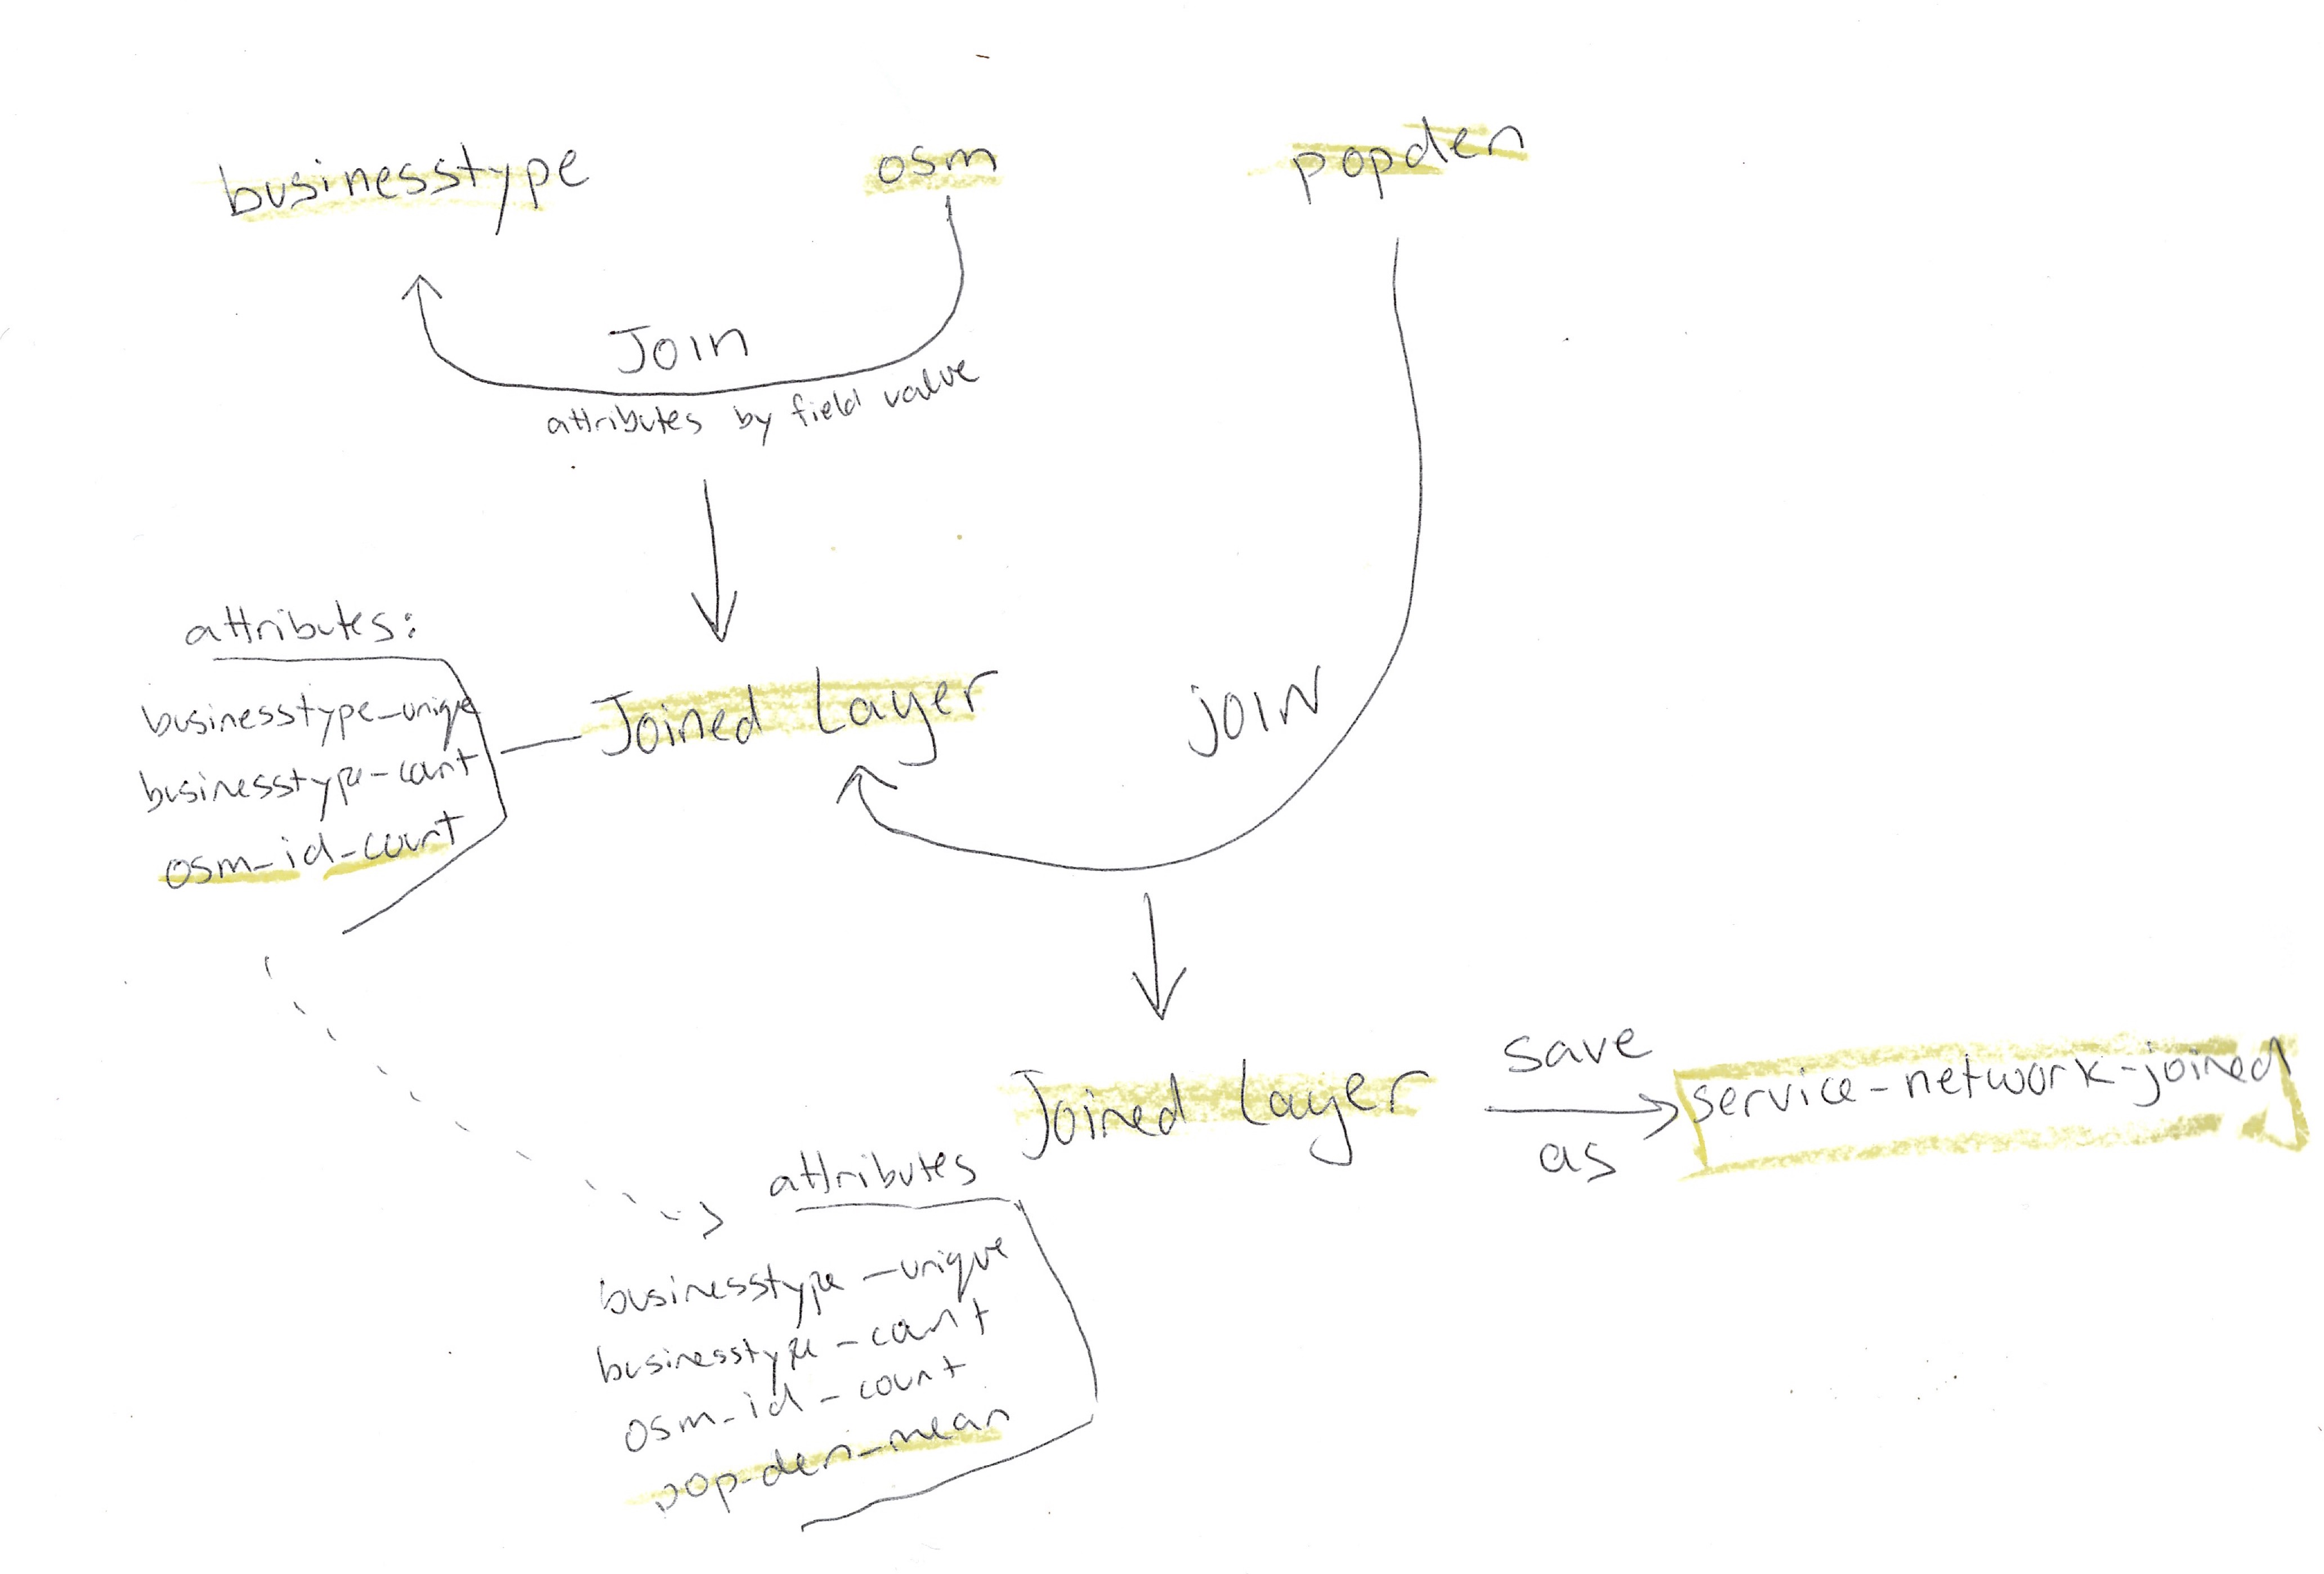 businesstype
osm
popden
JOIN
attributes by field value
attributes:
businesstype-unique
businesstype-count
osm-id-count
Joined Layer
JOIN
Joined Layer
save
as
service-network-joined
attributes
businesstype-unique
businesstype-count
osm-id-count
pop-den-mean